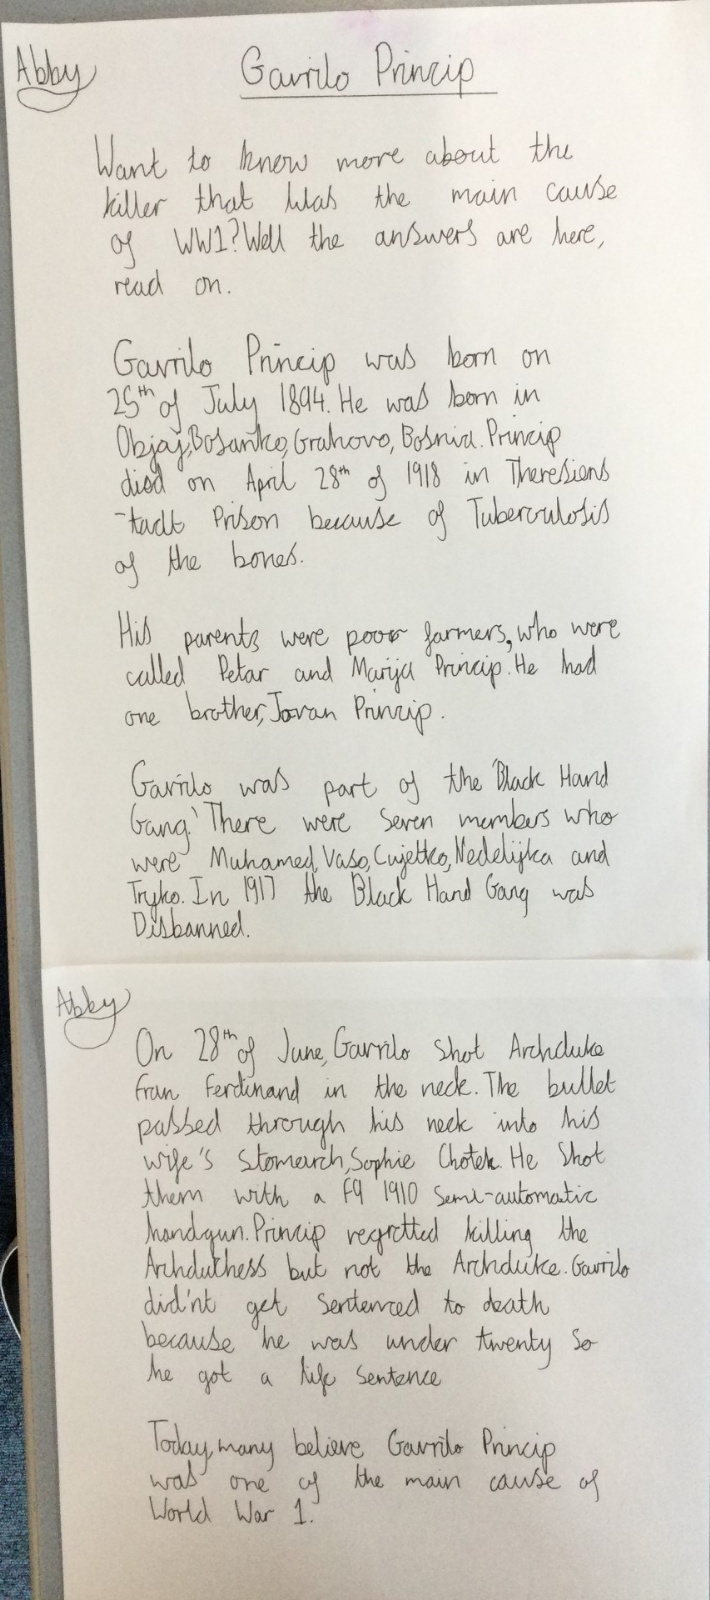 Abby
Gavrilo Princip
Want to know more about the
killer that Was the main cause
of WW1? Well the answers are here,
read on.
Gavrilo Princip was born on
25th of July 1894. He was born in
Objaj, Bosanko, Grahovo, Bosnia. Princip
died on April 28th of 1918 in Theresiens
-tadt Prison because of Tuberculosis
of the bones.
His parents were poor farmers, who were
called Petar and Marija Princip. He had
one brother, Jovan Princip.
Gavrilo was part of the 'Black Hand
Gang.' There were seven members who
were Muhamed, Vaso, Cvjetko, Nedelijka and
Tryko. In 1917 the Black Hand Gang was
Disbanned.
Abby
On 28th of June, Gavrilo shot Archduke
Fran Ferdinand in the neck. The bullet
passed through his neck into his
wife's stomarch, Sophie Chotek. He shot
them with a F9 1910 semi-automatic
handgun. Princip regretted killing the
Archduthess but not the Archduke. Gavrilo
did'nt get sentenced to death
because he was under twenty so
he got a life sentence
Today, many believe Gavrilo Princip
was one of the main cause of
World War 1.